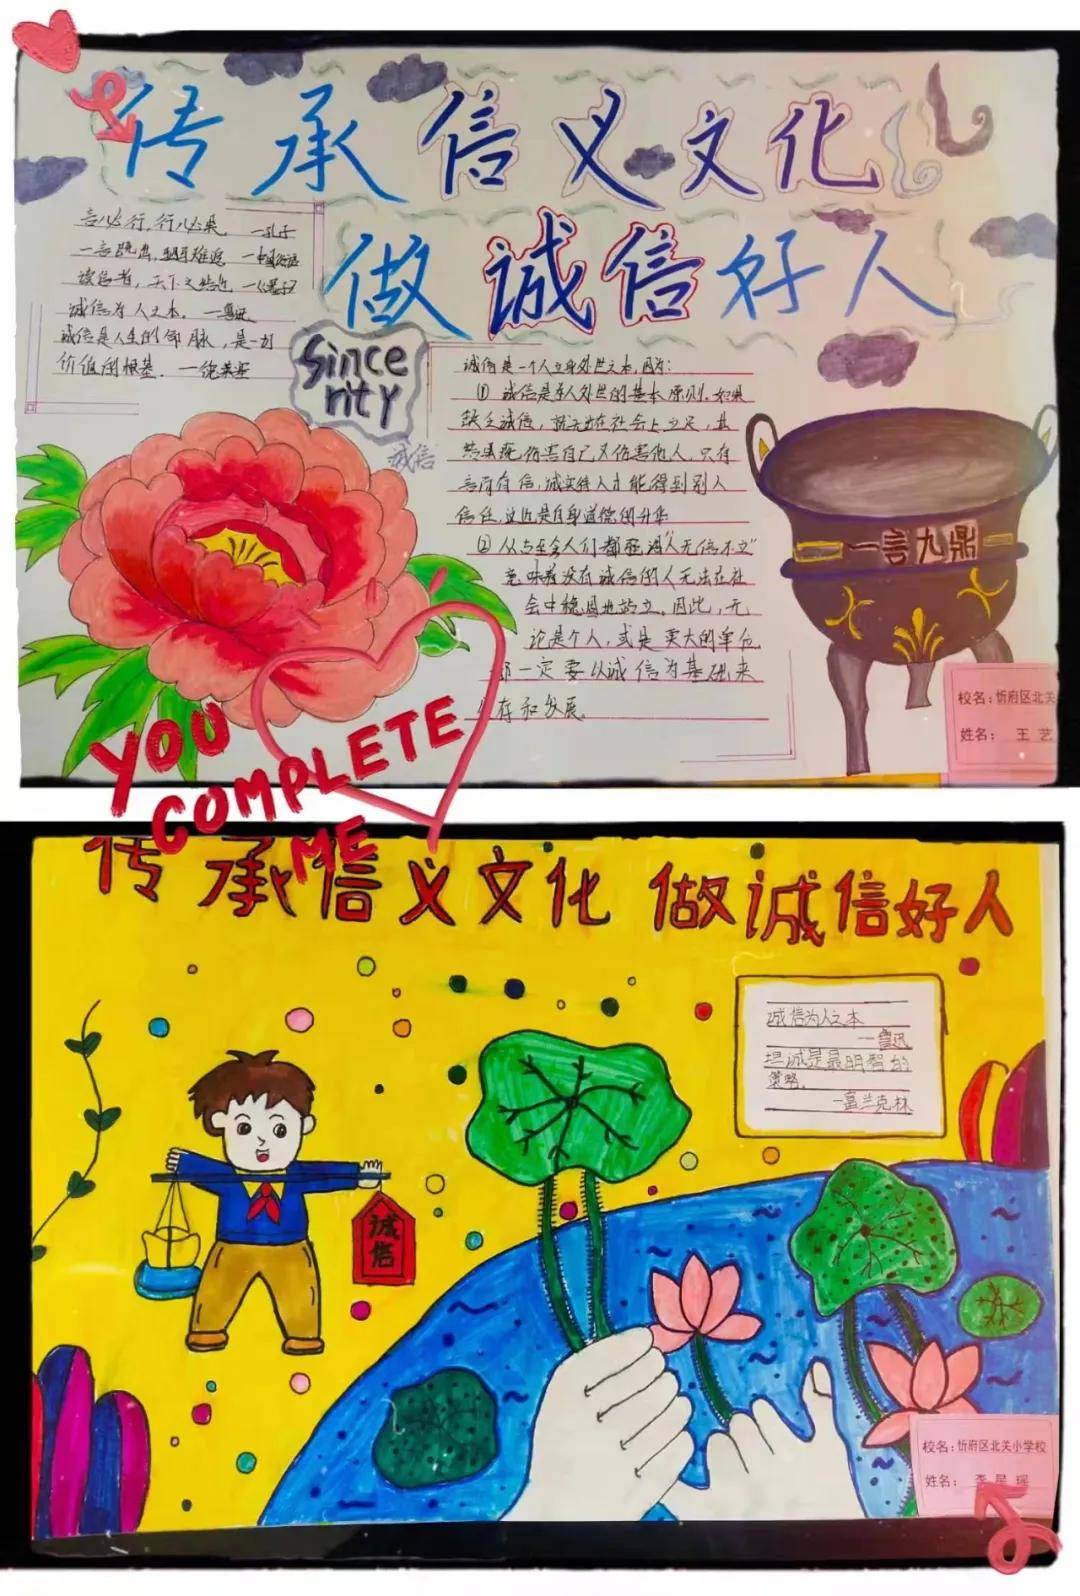 传承信义文化
做诚信好人
言必行,行必果。 —孔子
一言既出,驷马难追 —中国谚语
诚信者,天下之结也
诚信为人之本。 —鲁迅
诚信是人生的命脉,是一切
价值的根基.
Since
rity
诚信
诚信是一个人立身处世之本,因为:
① 诚信是为人处世的基本原则.如果
缺乏诚信,就无法在社会上立足,其
结果既伤害自己又伤害他人,只有
言而有信,诚实待人才能得到别人
信任,这也是自身道德的升华
意味着没有诚信的人无法在社
会中稳固地站立。因此,无
论是个人,或是更大的单位
都一定要以诚信为基础来
存和发展.
一言九鼎
校名:忻府区北关
姓名: 王 艺
YOU
COMPLETE
ME
传承信义文化 做诚信好人
诚信为人之本
—鲁迅
坦诚是最明智的
策略。
—富兰克林
诚信
校名:忻府区北关小学校
姓名: 李星瑶